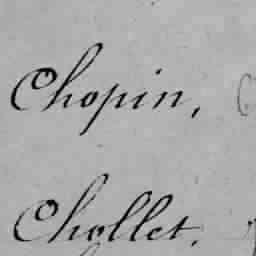 Chopin,
Chollet.